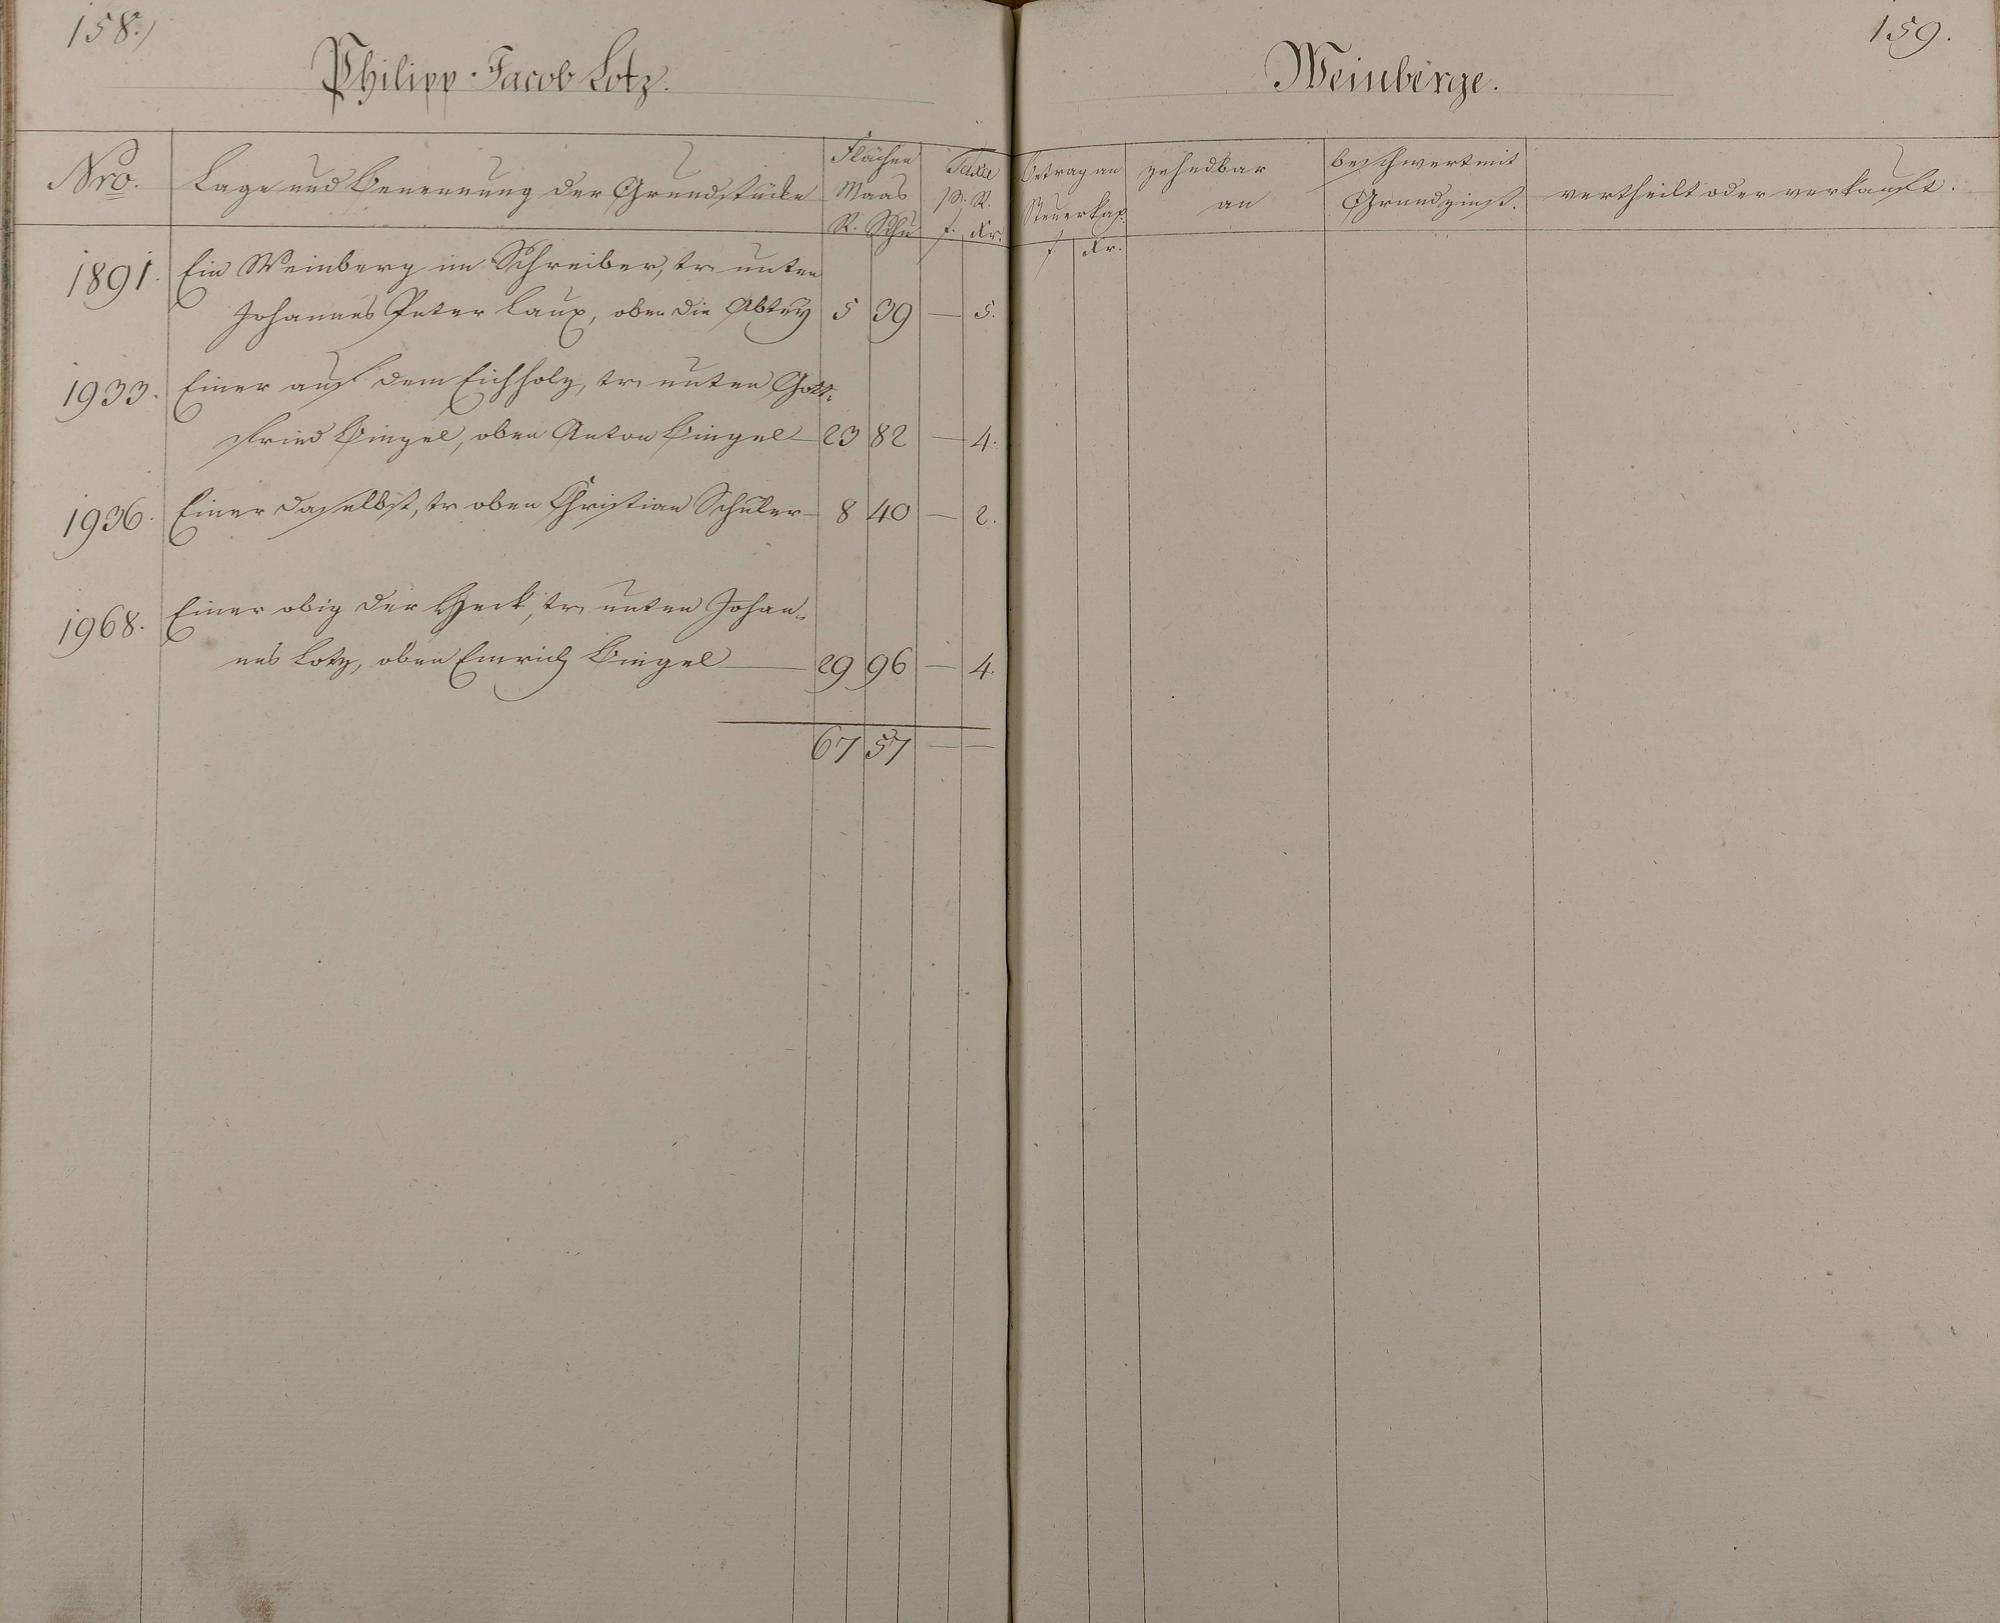 158.)
Philipp Jacob Lotz.
Nro.
Lage und Benennung der Grundstücke
Flächen
Maas
R. Schu
Taxe
p. R.
f. Kr.
1891. Ein Weinberg im Schreiber, tr. unten
Johannes Peter Laux, oben die Abtey 5 39 — 5.
1933. Einer auf dem Eichholz, tr. unten Gott-
fried Bingel, oben Anton Bingel — 23 82 — 4.
1936. Einer daselbst, tr. oben Christian Schuler — 8 40 — 2.
1968. Einer obig der Heck, tr. unten Johan-
nes Lotz, oben Emrich Bingel — 29 96 — 4.
67 57 — —
159.
Weinberge.
Betrag an
Steuerkap.
f Kr.
zehndbar
an
beschwert mit
Grundzinß.
vertheilt oder verkauft.